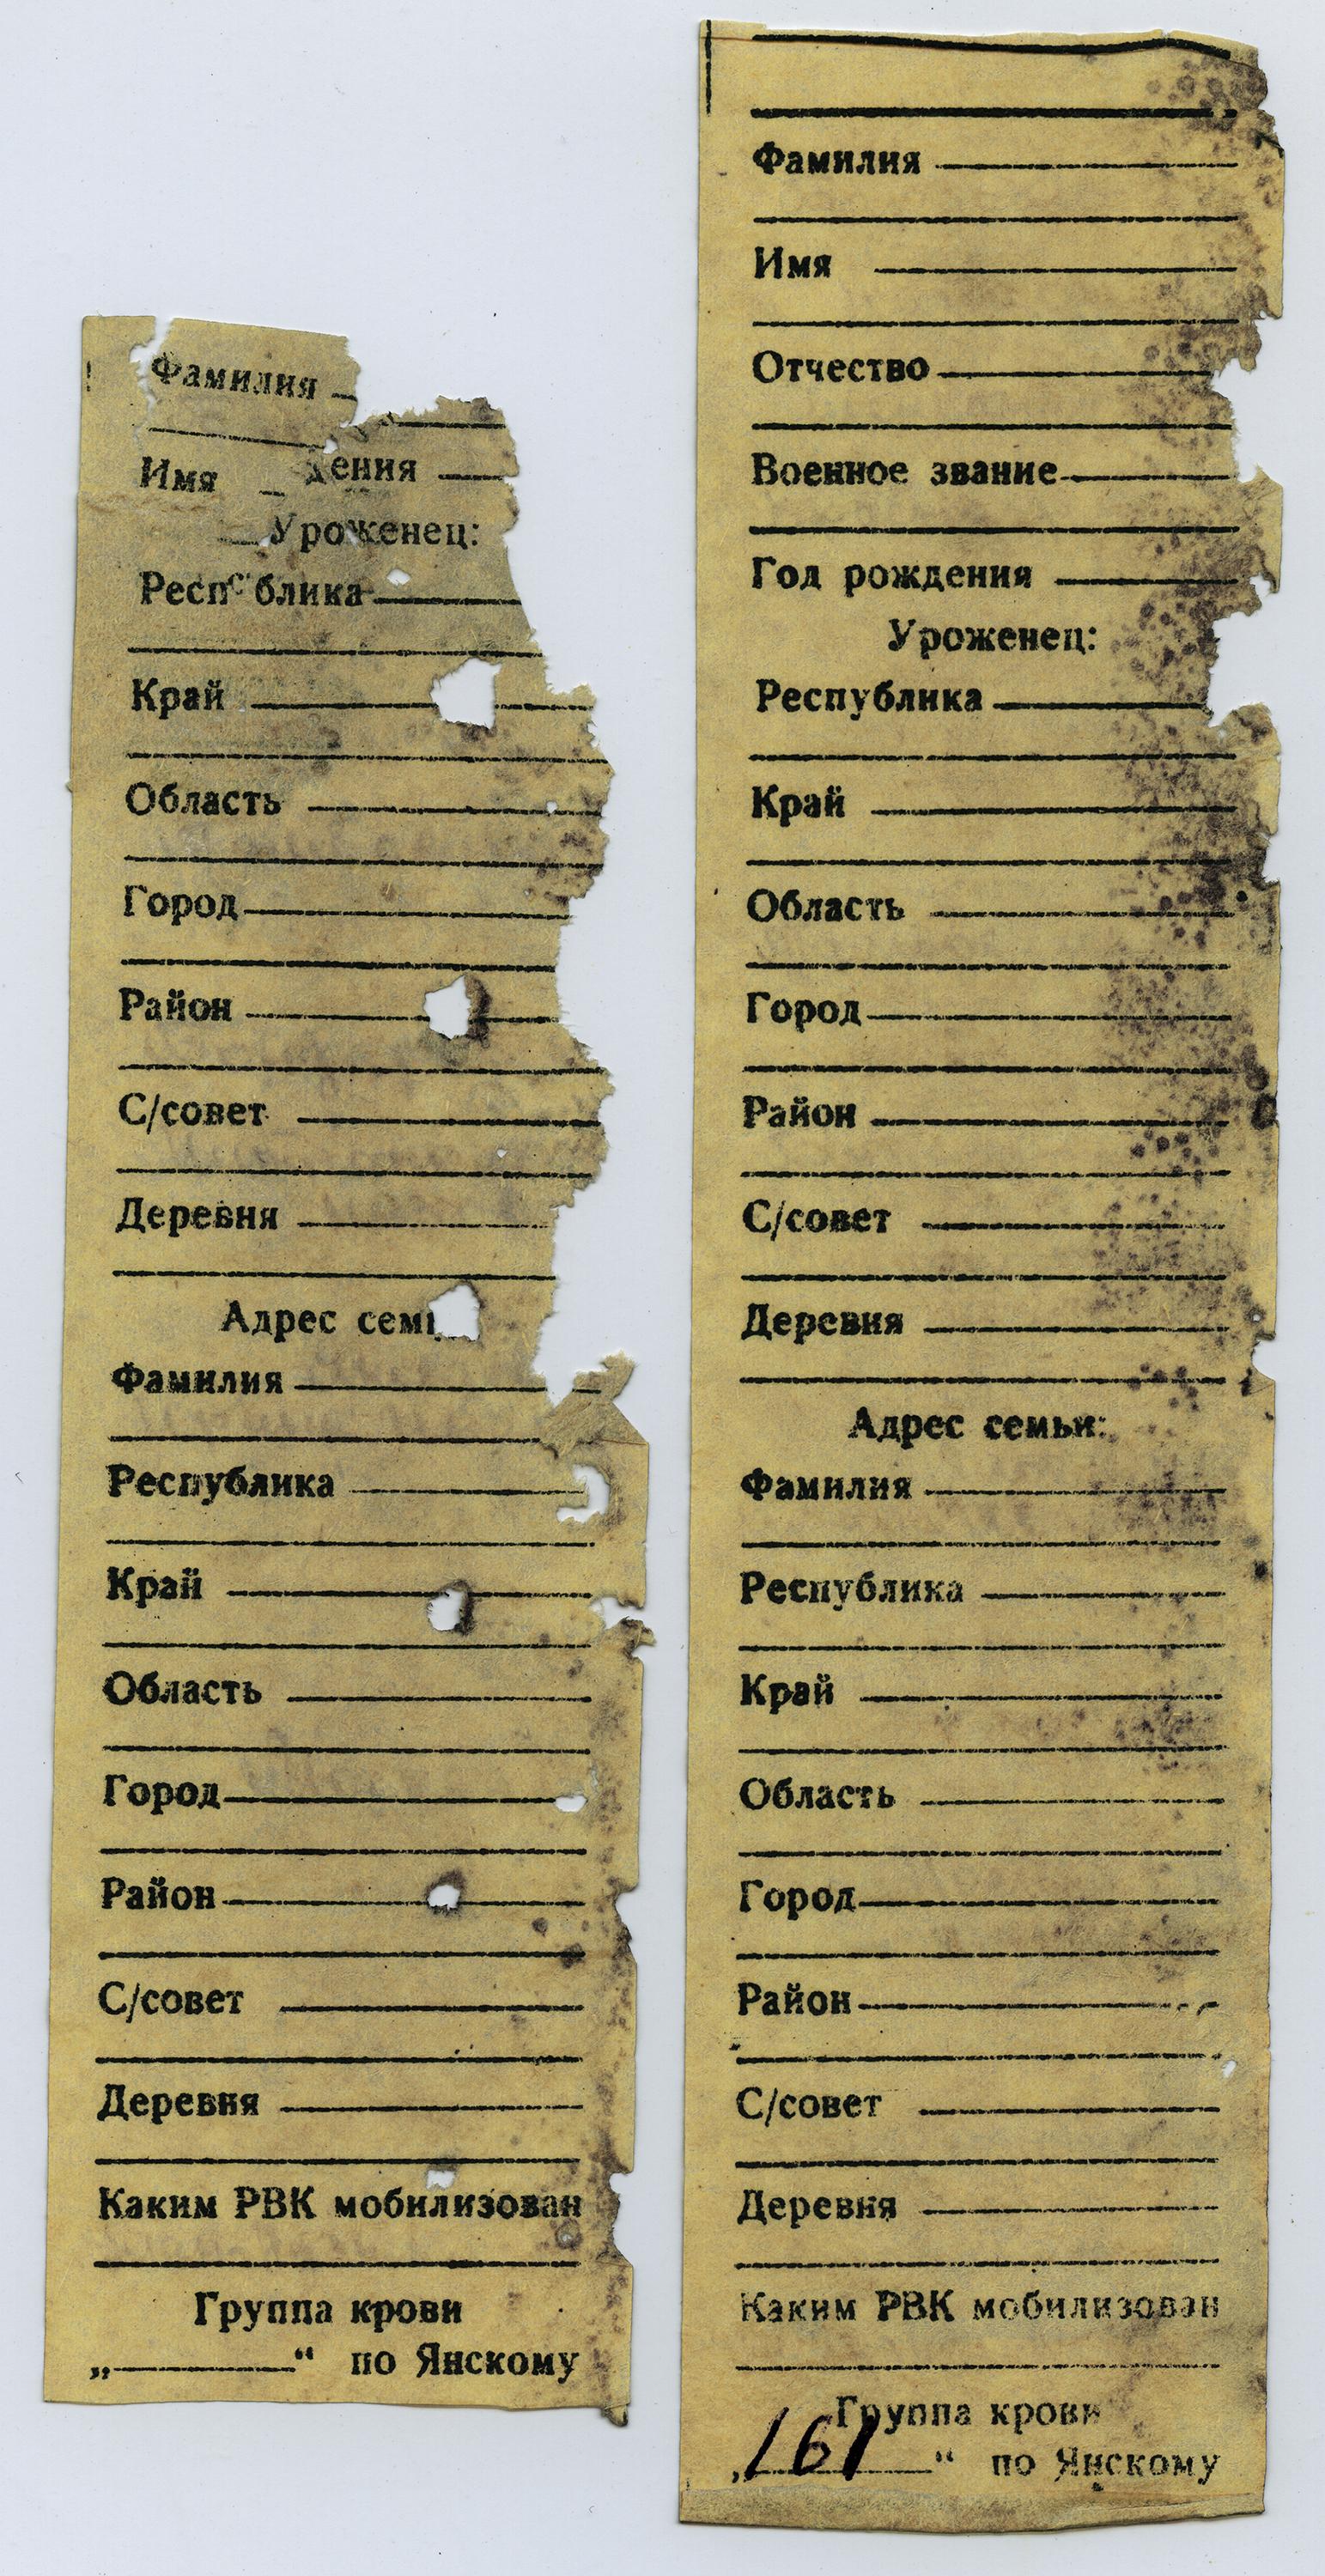 Фамилия
Имя
дения
Уроженец:
Республика
Край
Область
Город
Район
С/совет
Деревня
Адрес семь
Фамилия
Республика
Край
Область
Город
Район
С/совет
Деревня
Каким РВК мобилизован
Группа крови
„ “ по Янскому
Фамилия
Имя
Отчество
Военное звание
Год рождения
Уроженец:
Республика
Край
Область
Город
Район
С/совет
Деревня
Адрес семьи:
Фамилия
Республика
Край
Область
Город
Район
С/совет
Деревня
Каким РВК мобилизован
Группа крови
„161 “ по Янскому